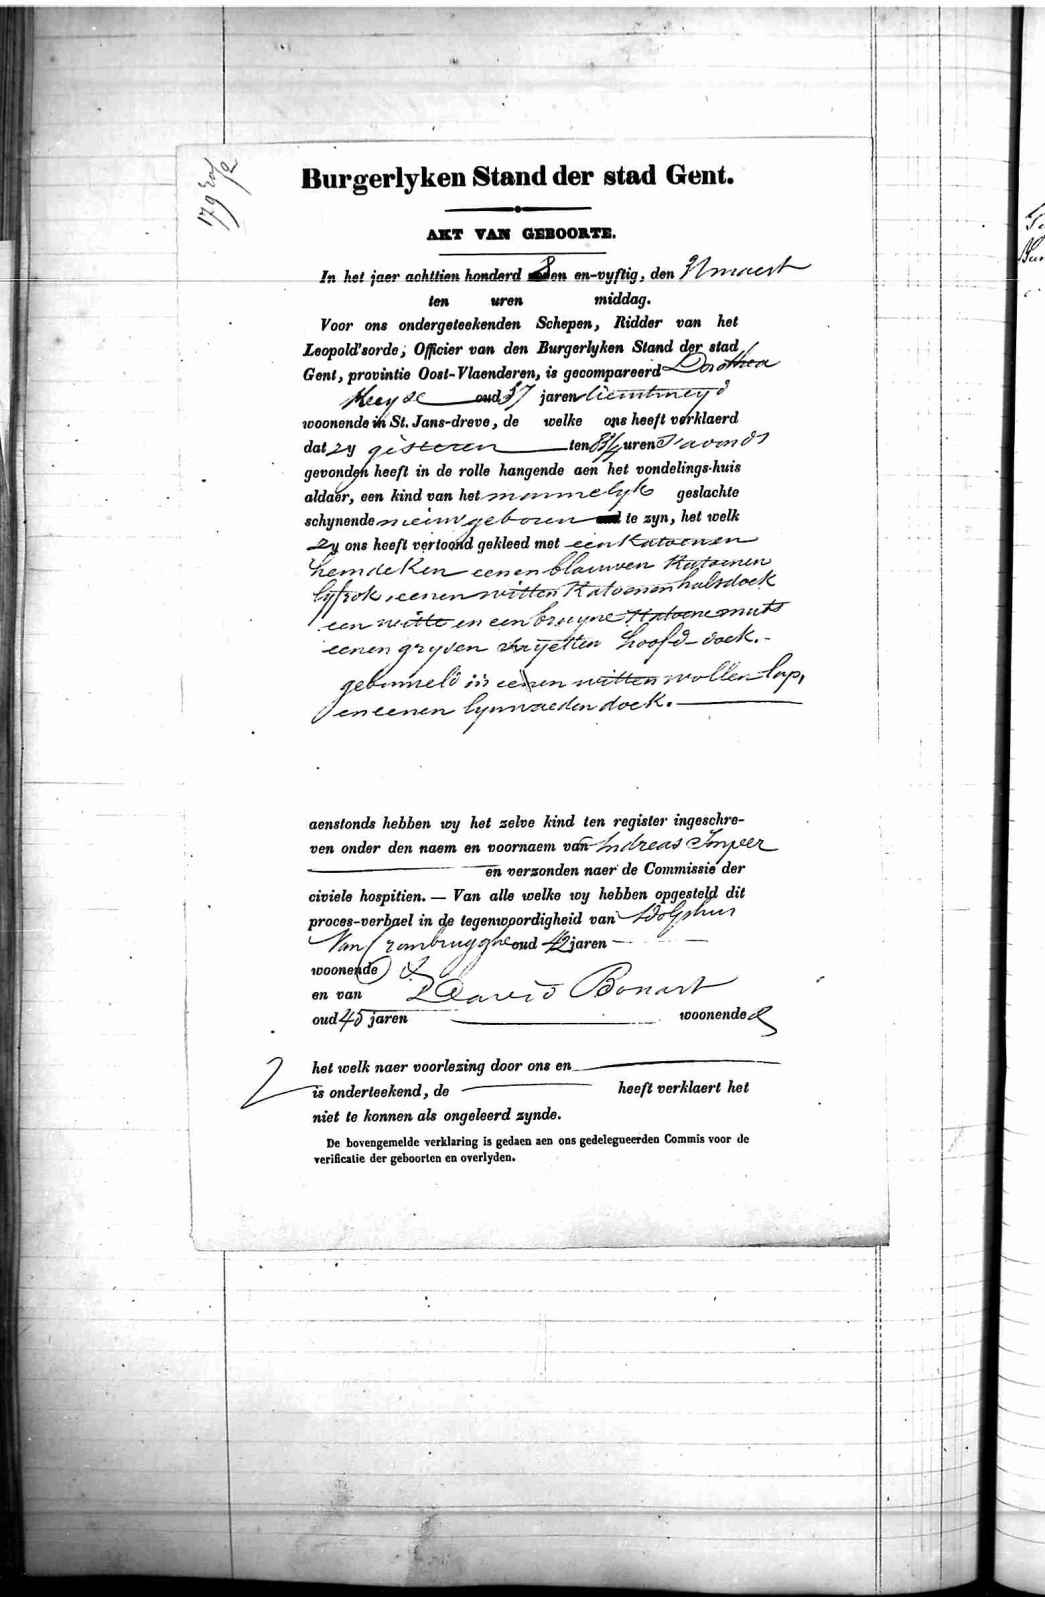 Burgerlyken Stand der stad Gent.
AKT VAN GEBOORTE.
In het jaer achttien honderd en-vyftig, den 31 maert
ten uren middag.
Voor ons ondergeteekenden Schepen, Ridder van het
Leopold'sorde, Officier van den Burgerlyken Stand der stad
Gent, provintie Oost-Vlaenderen, is gecompareerd Dorothea
oud 37 jaren
woonende in St. Jans-dreve, de welke ons heeft verklaerd
dat zy gisteren ten uren s'avonds
gevonden heeft in de rolle hangende aen het vondelings-huis
aldaer, een kind van het mannelyk geslachte
schynende nieuwgeboren te zyn, het welk
zy ons heeft vertoond gekleed met een Katoenen
hemdeken eenen blauwen Katoenen
lyfrok, eenen witten Katoenen halsdoek
een witte en een bruyne Katoene muts
eenen gryzen hoofd-doek.
gebunseld in eenen witten wollen lap,
en eenen lynwaeden doek.
aenstonds hebben wy het zelve kind ten register ingeschre-
ven onder den naem en voornaem van Andreas Impeer
en verzonden naer de Commissie der
civiele hospitien. — Van alle welke wy hebben opgesteld dit
proces-verbael in de tegenwoordigheid van Adolphus
Van Crombrugghe oud 42 jaren
woonende
en van David Bonart
oud 45 jaren woonende
het welk naer voorlezing door ons en
is onderteekend, de heeft verklaert het
niet te konnen als ongeleerd zynde.
De bovengemelde verklaring is gedaen aen ons gedelegueerden Commis voor de
verificatie der geboorten en overlyden.